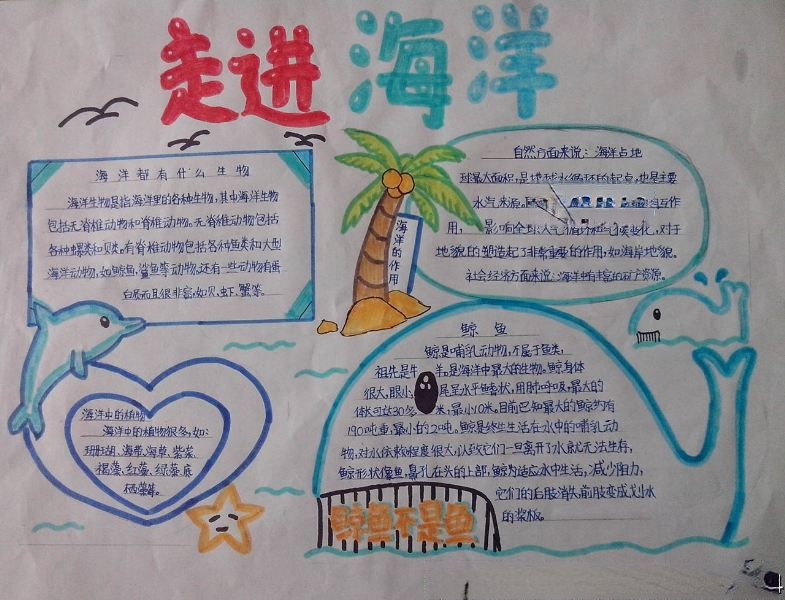 走进海洋
海洋都有什么生物
海洋生物是指海洋里的各种生物,其中海洋生物
包括无脊椎动物和脊椎动物。无脊椎动物包括
各种螺类和贝类。有脊椎动物包括各种鱼类和大型
海洋动物,如鲸鱼,鲨鱼等动物,还有一些动物有蛋
白质而且很非富,如贝、虾、蟹等。
海洋的作用
自然方面来说:海洋占地
球最大面积,是地球水循环的起点,也是主要
水汽来源,
作
用,影响全球大气
化,对于
地貌的塑造起了非常重要的作用,如海岸地貌。
社会经济方面来说:海洋中有丰富的矿产资源。
海洋中的植物
海洋中的植物很多,如:
珊瑚、海带、海草、紫菜、
褐藻、红藻、绿藻
鲸鱼
鲸是哺乳动物,不属于鱼类,
祖先是牛 羊。是海洋中最大的生物。鲸身体
很大,眼小 尾呈水平鳍状,用肺呼吸,最大的
体长可达30多 米,最小10米,目前已知最大的鲸约有
190吨重,最小的2吨。鲸是终生生活在水中的哺乳动
物,对水依赖程度很大,以致它们一旦离开了水就无法生存,
鲸形状像鱼,鼻孔在头的上部,鲸为适应水中生活,减少阻力,
它们的后肢消失,前肢变成划水
的桨板。
鲸鱼不是鱼